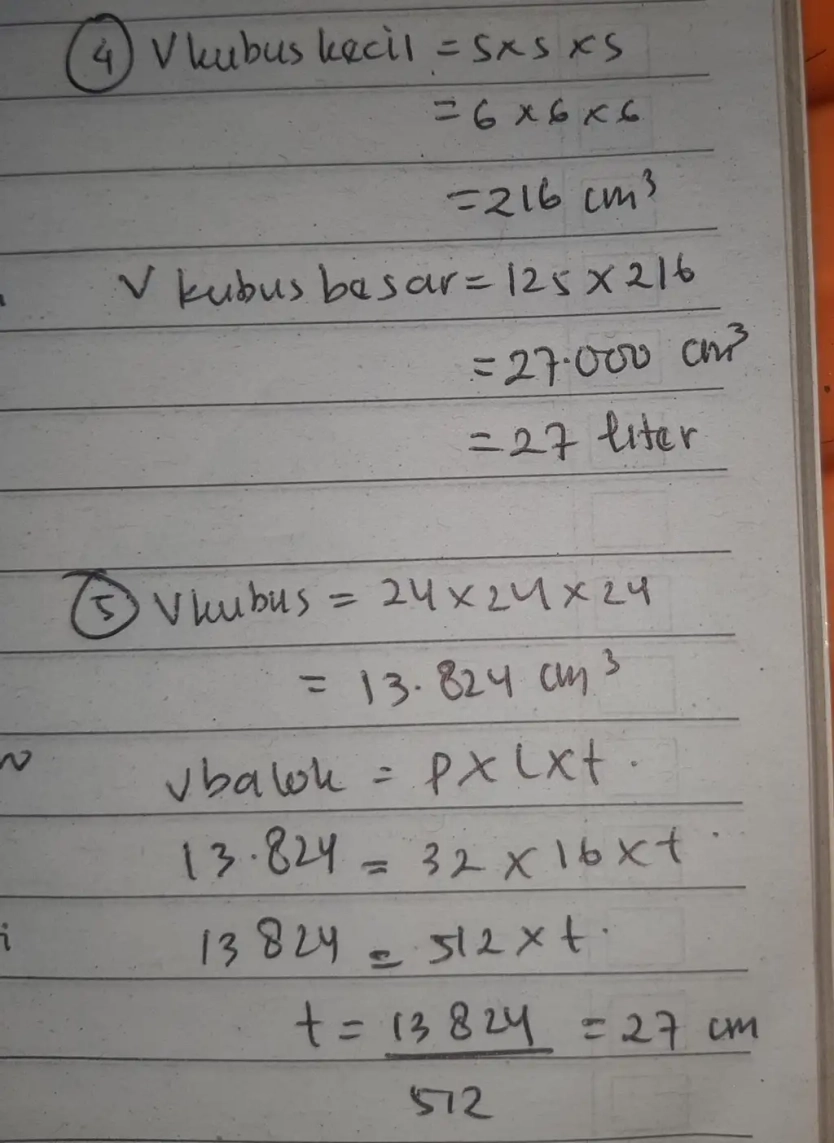 4 V kubus kecil = s x s x s
= 6 x 6 x 6
= 216 cm³
V kubus besar = 125 x 216
= 27.000 cm³
= 27 liter
5 V kubus = 24 x 24 x 24
= 13.824 cm³
V balok = p x l x t.
13.824 = 32 x 16 x t.
13 824 = 512 x t.
t = 13 824 = 27 cm
512